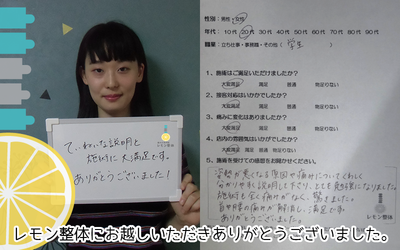 ていねいな説明と
施術に大満足です。
ありがとうございました！
レモン整体
性別：男性・女性
年代：10代 20代 30代 40代 50代 60代 70代 80代 90代
職業：立ち仕事・事務職・その他（学生）
1、施術はご満足いただけましたか？
大変満足 満足 普通 物足りない
2、接客対応はいかがでしたか？
大変満足 満足 普通 物足りない
3、痛みに変化はありましたか？
大変満足 満足 普通 物足りない
4、店内の雰囲気はいかがでしたか？
大変満足 満足 普通 物足りない
5、施術を受けての感想をお聞かせください。
姿勢が悪くなる原因や痛みについてくわしく
分かりやすく説明して下さり、とても勉強になりました。
施術も全く痛みがなく、驚きました。
ありがとうございました。
レモン整体
レモン整体にお越しいただきありがとうございました。